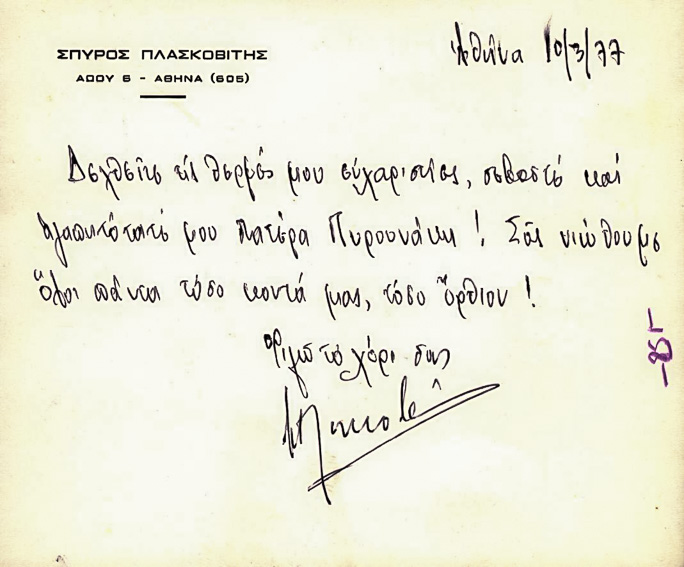 ΣΠΥΡΟΣ ΠΛΑΣΚΟΒΙΤΗΣ
ΑΩΟΥ 6 - ΑΘΗΝΑ (605)
Ἀθήνα 10/3/77
Δεχθεῖτε τίς θερμές μου εὐχαριστίες, σεβαστέ καί
ἀγαπητότατέ μου Πατέρα Πυρουνάκη! Σᾶς νιώθουμε
ὅλοι πάντα τόσο κοντά μας, τόσο ὄρθιον!
Φιλῶ τό χέρι σας